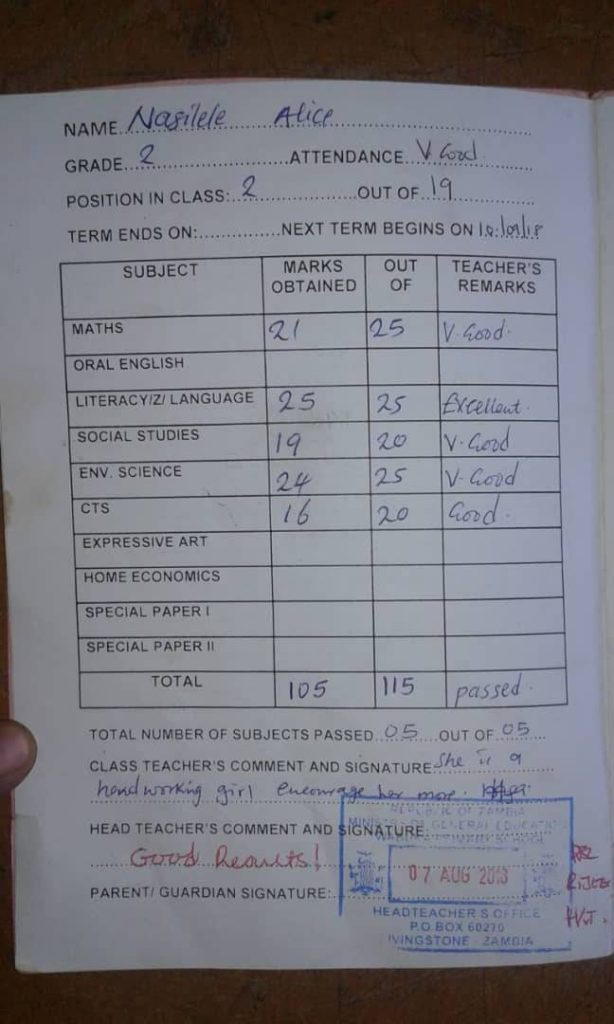 NAME Nasilele Alice
GRADE 2 ATTENDANCE V Good
POSITION IN CLASS: 2 OUT OF 19
TERM ENDS ON: NEXT TERM BEGINS ON 10/09/18
SUBJECT MARKS OBTAINED OUT OF TEACHER'S REMARKS
MATHS 21 25 V. Good.
ORAL ENGLISH
LITERACY/Z/ LANGUAGE 25 25 Excellent.
SOCIAL STUDIES 19 20 V. Good
ENV. SCIENCE 24 25 V. Good
CTS 16 20 Good.
EXPRESSIVE ART
HOME ECONOMICS
SPECIAL PAPER I
SPECIAL PAPER II
TOTAL 105 115 passed.
TOTAL NUMBER OF SUBJECTS PASSED 05 OUT OF 05
CLASS TEACHER'S COMMENT AND SIGNATURE She is a
hardworking girl encourage her more.
REPUBLIC OF ZAMBIA
MINISTRY OF GENERAL EDUCATION
PRIMARY SCHOOL
HEAD TEACHER'S COMMENT AND SIGNATURE:
Good Results!
07 AUG 2018
PARENT/ GUARDIAN SIGNATURE:
HEADTEACHER'S OFFICE
P.O. BOX 60270
LIVINGSTONE - ZAMBIA
HVT.